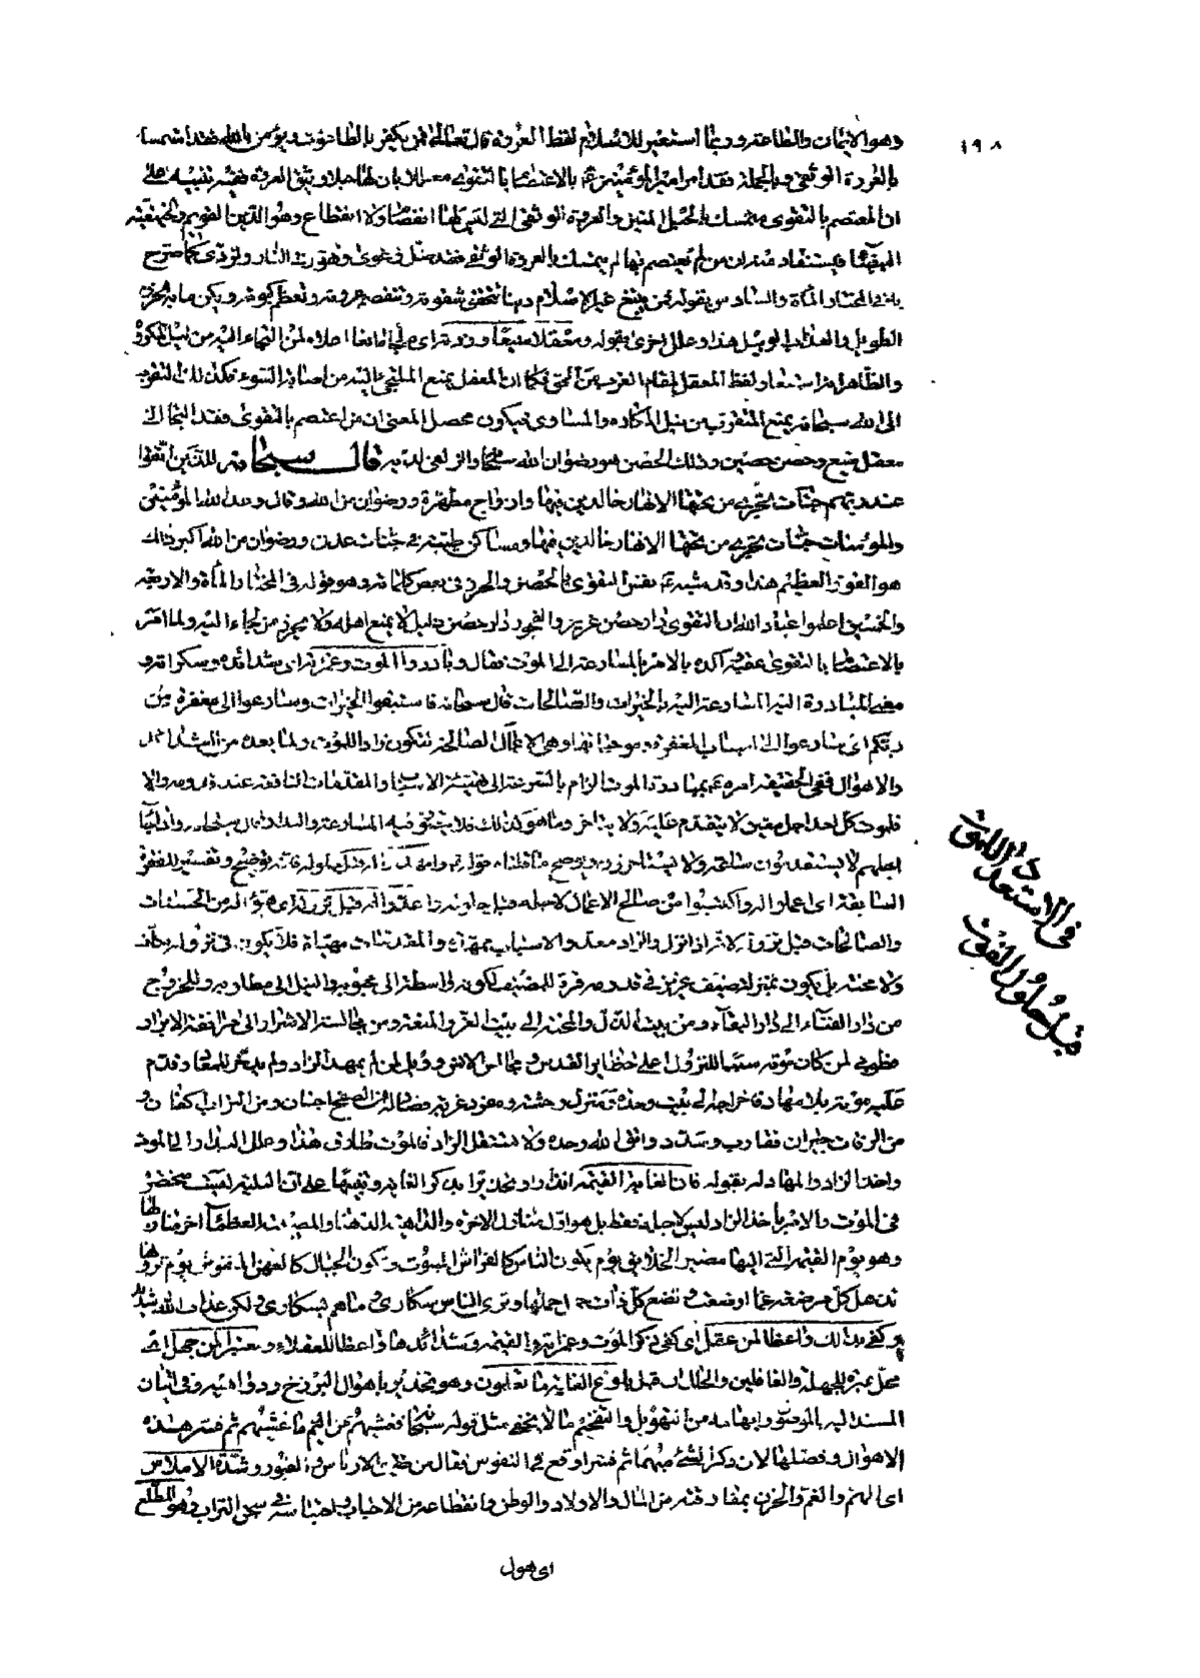 ١٩٨
وهو الايمان والطاعة وربما استعير للاسلام لفظ العروة قال تعالى فمن يكفر بالطاغوت ويؤمن بالله فقد استمسك
بالعروة الوثقى وبالجملة فقد امر امير المؤمنين ع بالاعتصام بالتقوى معللا بان لها حبلا وثيق العروة ففيه تنبيه على
ان المعتصم بالتقوى متمسك بالحبل المتين والعروة الوثقى التى ليس لها انفصام ولا انقطاع وهو الدين القويم والحنيفية
البيضاء فيستفاد منه ان من لم يعتصم بها لم يتمسك بالعروة الوثقى فقد ضل وغوى وهو في النار وتردى كما صرح
به في المختار المأة والسادس بقوله فمن يبتغ غير الاسلام دينا تتحقق شقوته وتنفصم عروته وتعظم كبوته ويكن مآبه الحزن
الطويل والعذاب الوبيل هذا وعلل اخرى بقوله ومعقلا منيعا ذروته اى ملجأ مانعا اعلاه لمن التجاء اليه من نيل المكروه
والظاهر انه استعار لفظ المعقل لمقام القرب من الحق فكما ان المعقل يمنع الملتجى اليه من اصابة السوء فكذلك التقرب
الى الله سبحانه يمنع المتقرب من نيل المكاره والمساوى فيكون محصل المعنى ان من اعتصم بالتقوى فقد التجا الى
معقل منيع وحصن حصين وذلك الحصن هو رضوان الله سبحانه والزلفى لديه قال سبحانه للذين اتقوا
عند ربهم جنات تجرى من تحتها الانهار خالدين فيها وازواج مطهرة ورضوان من الله وقال وعد الله المؤمنين
والمؤمنات جنات تجرى من تحتها الانهار خالدين فيها ومساكن طيبة في جنات عدن ورضوان من الله اكبر ذلك
هو الفوز العظيم هذا وقد شبه ع نفس التقوى بالحصن والحرز في بعض كلماته وهو قوله في المختار المأة والاربعة
والخمسين اعلموا عباد الله ان التقوى دار حصن عزيز والفجور دار حصن ذليل لا يمنع اهله ولا يحرز من لجاء اليه ولما امر
بالاعتصام بالتقوى عقبه اكده بالامر بالمسارعة الى الموت فقال وبادروا الموت وغمراته اى شدائده وسكراته و
معنى المبادرة اليه المسارعة اليه بالخيرات والصالحات قال سبحانه فاستبقوا الخيرات وسارعوا الى مغفرة من
ربكم اى سارعوا الى اسباب المغفرة وموجباتها وهى الاعمال الصالحة لتكون زادا للموت ولما بعده من الشدائد
والاهوال ففى الحقيقة امره ع بمبادرة الموت الزام بالسرعة الى تهيئة الاسباب والمقدمات النافعة عند ذلك والا
فلموت كل احد اجل معين لا يتقدم عليه ولا يتاخر وما هو كذلك فلا يتصور فيه المسارعة والمبادرة قال سبحانه واذا جاء
اجلهم لا يستقدمون ساعة ولا يستاخرون ويوضح ما قلناه قوله وامهدوا له قبل حلوله فانه توضيح وتفسير للفقرة
السابقة اى اعملوا له واكتسبوا من صالح الاعمال لاجله قبل حلوله واعدوا له قبل نزوله اى هيؤا له من الحسنات
والصالحات قبل نزوله لانه اذا نزل والزاد معد والاسباب ممهدة والمقدمات مهياة فلا يكون في نزوله كلفة
ولا محنة بل يكون بمنزلة ضيف عزيز في قدومه قرة للمضيف لكونه واسطة الى محبوبه والنيل الى مطلوبه والخروج
من دار الفناء الى دار البقاء ومن بيت الذل والمحنة الى بيت العز والمغفرة ومن مجالسة الاشرار الى مرافقة الابرار
فطوبى لمن كان موته سببا للنزول على حظاير القدس ومجالس الانس وويل لمن لم يمهد الزاد ولم يدخر للمعاد وقدم
عليه موته بلا مهاد فاخرجه الى بيت وحدة ومنزل وحشة ومفرد غربة
من الرفات جيران فقارب وسدد واتق الله وحده ولا تستقل الزاد فالموت طارق هذا وعلل البدار الى الموت
واخذ الزاد والمهاد له بقوله فان الغاية القيمة انذار وتحذير بذكر الغاية وتنبيها على ان البلية ليست منحصرة
في الموت والامر باخذ الزاد ليس لاجله فقط بل هو اول منازل الاخرة والداهية الدهياء والمصيبة العظمى اخر منازلها
وهو يوم القيمة التى اليها مصير الخلايق يوم يكون الناس كالفراش المبثوث وتكون الجبال كالعهن المنفوش يوم ترونها
تذهل كل مرضعة عما ارضعت وتضع كل ذات حمل حملها وترى الناس سكارى وما هم بسكارى ولكن عذاب الله شديد
وكفى بذلك واعظا لمن عقل اى كفى ذكر الموت وغمراته والقيمة وشدائدها واعظا للعقلاء ومعتبرا لمن جهل اى
محل عبرة للجهلة والغافلين والحال ان قبل بلوغ الغاية ما تعلمون وهو تحذير باهوال البرزخ ودواهيه وفي اتيان
المسند اليه بالموصول وابهامه من التهويل والتفخيم ما لا يخفى مثل قوله سبحانه فغشيهم من اليم ما غشيهم ثم فسر هذه
الاهوال وفصلها لان ذكر الشئ مبهما ثم مفسرا اوقع في النفوس فقال من ضيق الارماس اى القبور وشدة الابلاس
اى الهم والغم والحزن بمفارقته من المال والاولاد والوطن وانقطاعه من الاحباب واحتباسه في سجن التراب وهول المطلع
في الاستعداد للموت
قبل حلول الفوت
اى هول